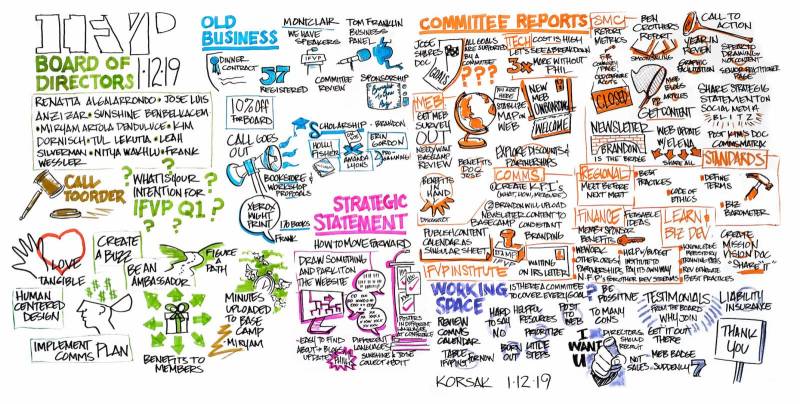 IFVP
BOARD OF
DIRECTORS 1·12·19
RENATTA ALGALARRONDO · JOSE LUIS
ANZIZAR · SUNSHINE BENBELKACEM
· MIRYAM ARTOLA DENDULUCE · KIM
DORNISCH · TUL LEKUTTA · LEAH
SILVERMAN · NITYA WAKHLU · FRANK
WESSLER
CALL
TO ORDER
WHAT IS YOUR
INTENTION FOR
IFVP Q1?
I LOVE
TANGIBLE
CREATE
A BUZZ
BE AN
AMBASSADOR
FIGURE
PATH
HUMAN
CENTERED
DESIGN
IMPLEMENT
COMMS PLAN
BENEFITS TO
MEMBERS
MINUTES
UPLOADED
TO BASE
CAMP
MIRYAM
OLD
BUSINESS
MONTCLAIR
WE HAVE
SPEAKERS
TOM FRANKLIN
BUSINESS
PANEL
DINNER
CONTRACT
37
REGISTERED
IFVP
COMMITTEE
REVIEW
SPONSORSHIP
10% OFF
FOR BOARD
SCHOLARSHIP - BRANDON
HOLLI
FISHER
AMANDA
LYONS
ERIN
GORDON
CALL GOES
OUT
BOOKSTORE &
WORKSHOP
PROPOSALS
XEROX
MIGHT
PRINT
170 BOOKS
FRANK
STRATEGIC
STATEMENT
HOW TO MOVE FORWARD
DRAW SOMETHING
AND PARK IT ON
THE WEBSITE
· EASY TO FIND
· ABOUT → BLOG
UPDATE
DIFFERENT
LANGUAGES
SUNSHINE & JOSE
COLLECT & EDIT
POSTERS
IN DIFFERENT
LANGUAGES
AT CONFERENCE
COMMITTEE REPORTS
JOSE
SHARES
DOC
GOALS
ALL GOALS
ARE SUPPORTED
BY A
COMMITTEE
???
TECH
COST IS HIGH
LET'S SEE A BREAKDOWN
3x MORE WITHOUT
PHIL
MEB
GET MEB
SURVEY
OUT
NEED/WANT
BASECAMP
REVIEW
YOU ARE
HERE
STABILIZE
MAP ON
WEB
NEW
MEB
ONBOARDING
WELCOME
BENEFITS
DOC
JOSE
EXPLORE DISCOUNTS &
PARTNERSHIPS
BENEFITS
HAND
COMMS
① CREATE KPI'S
(WHAT, HOW, MEASURE)
② BRANDON WILL UPLOAD
NEWSLETTER CONTENT TO
BASECAMP
CONSISTENT
BRANDING
PUBLISH CONTENT
CALENDAR AS
SINGULAR SHEET
IFVP INSTITUTE
STAMP
WAITING
ON IRS LETTER
SMC
REPORT
METRICS
BEN
CROTHERS
REPORT
CALL TO
ACTION
YEAR IN
REVIEW
GRAPHIC
FACILITATION
CLOSED
MEB
BLOGS
ARTICLES
GET CONTENT
SHARE STRATEGIS
STATEMENT ON
SOCIAL MEDIA
BLITZ
NEWSLETTER
BRANDON
IS THE BRIDGE
WEB UPDATE
w/ ELENA
SHARE ALL
POST KIM'S DOC
COMMS MATRIX
STANDARDS
REGIONAL
MEET BEFORE
NEXT MEET
BEST
PRACTICES
CODE OF
ETHICS
DEFINE
TERMS
BIZ
BAROMETER
FINANCE
MEMB & SPONSOR
BENEFITS
FEASIBLE
IDEAS
LEARN
BIZ DEV.
CREATE
MISSION
VISION DOC
"SHARE IT"
MEMORY
OTHER ORGS
PARTNERSHIP
HELP w/ BUDGET
INSTITUTE TO
PAY ITS OWN WAY
OTHER REV STREAMS
BEST PRACTICES
WORKING
SPACE
IS THERE A COMMITTEE
TO COVER EVERY GOAL?
REVIEW
COMMS
CALENDAR
TABLE
IFVP INST. FOR NOW
HARD
TO SAY
NO
BURN
OUT
HELPFUL
RESOURCES
PRIORITIZE
LITTLE
STEPS
POST
TO
WEB
BE
POSITIVE
TO MANY
CONS
I
WANT
U
DIRECTORS
SHOULD
RECRUIT
NOT
SALES
TESTIMONIALS
FROM THE BOARD
WHY JOIN
GET IT OUT
THERE
MEB BADGE
SUDDENLY 7
LIABILITY
INSURANCE
THANK
YOU
KORSAK 1·12·19